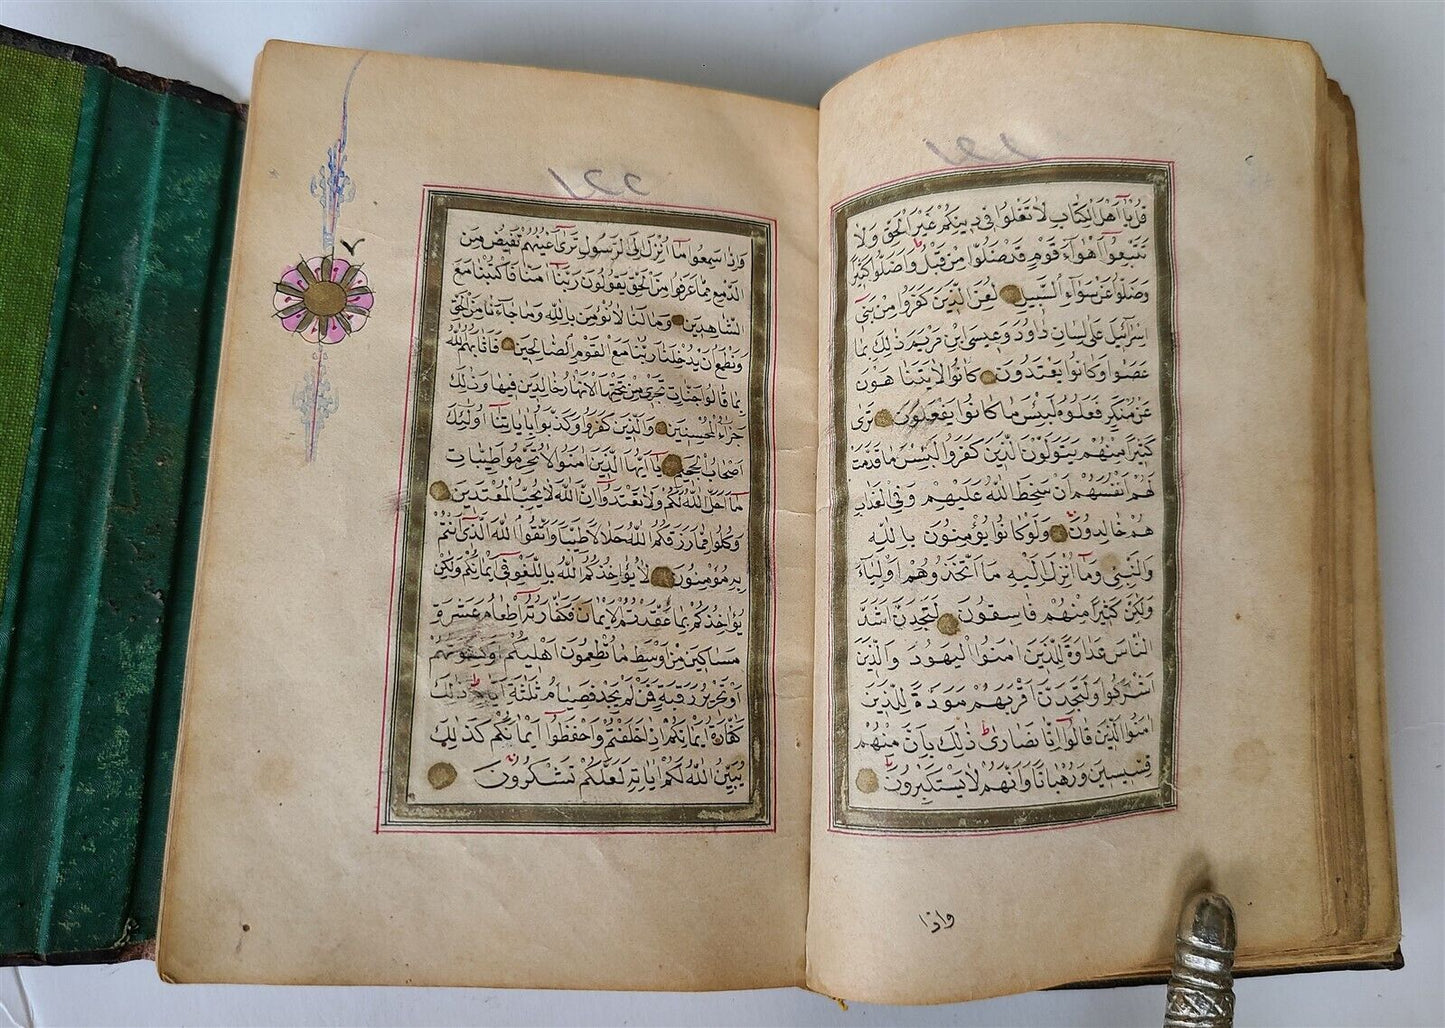 قُلْ يَا اَهْلَ الْكِتَابِ لَا تَغْلُوا فِي دِينِكُمْ غَيْرَ الْحَقِّ وَلَا
تَتَّبِعُوا اَهْوَاءَ قَوْمٍ قَدْ ضَلُّوا مِنْ قَبْلُ وَاَضَلُّوا كَثِيرًا
وَضَلُّوا عَنْ سَوَاءِ السَّبِيلِ لُعِنَ الَّذِينَ كَفَرُوا مِنْ بَنِي
اِسْرَائِيلَ عَلَى لِسَانِ دَاوُدَ وَعِيسَى ابْنِ مَرْيَمَ ذٰلِكَ بِمَا
عَصَوْا وَكَانُوا يَعْتَدُونَ كَانُوا لَا يَتَنَاهَوْنَ
عَنْ مُنْكَرٍ فَعَلُوهُ لَبِئْسَ مَا كَانُوا يَفْعَلُونَ تَرَى
كَثِيرًا مِنْهُمْ يَتَوَلَّوْنَ الَّذِينَ كَفَرُوا لَبِئْسَ مَا قَدَّمَتْ
لَهُمْ اَنْفُسُهُمْ اَنْ سَخِطَ اللّٰهُ عَلَيْهِمْ وَفِي الْعَذَابِ
هُمْ خَالِدُونَ وَلَوْ كَانُوا يُؤْمِنُونَ بِاللّٰهِ
وَالنَّبِيِّ وَمَا اُنْزِلَ اِلَيْهِ مَا اتَّخَذُوهُمْ اَوْلِيَاءَ
وَلٰكِنَّ كَثِيرًا مِنْهُمْ فَاسِقُونَ لَتَجِدَنَّ اَشَدَّ
النَّاسِ عَدَاوَةً لِلَّذِينَ اٰمَنُوا الْيَهُودَ وَالَّذِينَ
اَشْرَكُوا وَلَتَجِدَنَّ اَقْرَبَهُمْ مَوَدَّةً لِلَّذِينَ
اٰمَنُوا الَّذِينَ قَالُوا اِنَّا نَصَارٰى ذٰلِكَ بِاَنَّ مِنْهُمْ
قِسِّيسِينَ وَرُهْبَانًا وَاَنَّهُمْ لَا يَسْتَكْبِرُونَ
واذا
وَاِذَا سَمِعُوا مَا اُنْزِلَ اِلَى الرَّسُولِ تَرٰى اَعْيُنَهُمْ تَفِيضُ مِنَ
الدَّمْعِ مِمَّا عَرَفُوا مِنَ الْحَقِّ يَقُولُونَ رَبَّنَا اٰمَنَّا فَاكْتُبْنَا مَعَ
الشَّاهِدِينَ وَمَا لَنَا لَا نُؤْمِنُ بِاللّٰهِ وَمَا جَاءَنَا مِنَ الْحَقِّ
وَنَطْمَعُ اَنْ يُدْخِلَنَا رَبُّنَا مَعَ الْقَوْمِ الصَّالِحِينَ فَاَثَابَهُمُ اللّٰهُ
بِمَا قَالُوا جَنَّاتٍ تَجْرِي مِنْ تَحْتِهَا الْاَنْهَارُ خَالِدِينَ فِيهَا وَذٰلِكَ
جَزَاءُ الْمُحْسِنِينَ وَالَّذِينَ كَفَرُوا وَكَذَّبُوا بِاٰيَاتِنَا اُولٰئِكَ
اَصْحَابُ الْجَحِيمِ يَا اَيُّهَا الَّذِينَ اٰمَنُوا لَا تُحَرِّمُوا طَيِّبَاتِ
مَا اَحَلَّ اللّٰهُ لَكُمْ وَلَا تَعْتَدُوا اِنَّ اللّٰهَ لَا يُحِبُّ الْمُعْتَدِينَ
وَكُلُوا مِمَّا رَزَقَكُمُ اللّٰهُ حَلَالًا طَيِّبًا وَاتَّقُوا اللّٰهَ الَّذِي اَنْتُمْ
بِهِ مُؤْمِنُونَ لَا يُؤَاخِذُكُمُ اللّٰهُ بِاللَّغْوِ فِي اَيْمَانِكُمْ وَلٰكِنْ
يُؤَاخِذُكُمْ بِمَا عَقَّدْتُمُ الْاَيْمَانَ فَكَفَّارَتُهُ اِطْعَامُ عَشَرَةِ
مَسَاكِينَ مِنْ اَوْسَطِ مَا تُطْعِمُونَ اَهْلِيكُمْ اَوْ كِسْوَتُهُمْ
اَوْ تَحْرِيرُ رَقَبَةٍ فَمَنْ لَمْ يَجِدْ فَصِيَامُ ثَلٰثَةِ اَيَّامٍ ذٰلِكَ
كَفَّارَةُ اَيْمَانِكُمْ اِذَا حَلَفْتُمْ وَاحْفَظُوا اَيْمَانَكُمْ كَذٰلِكَ
يُبَيِّنُ اللّٰهُ لَكُمْ اٰيَاتِهِ لَعَلَّكُمْ تَشْكُرُونَ